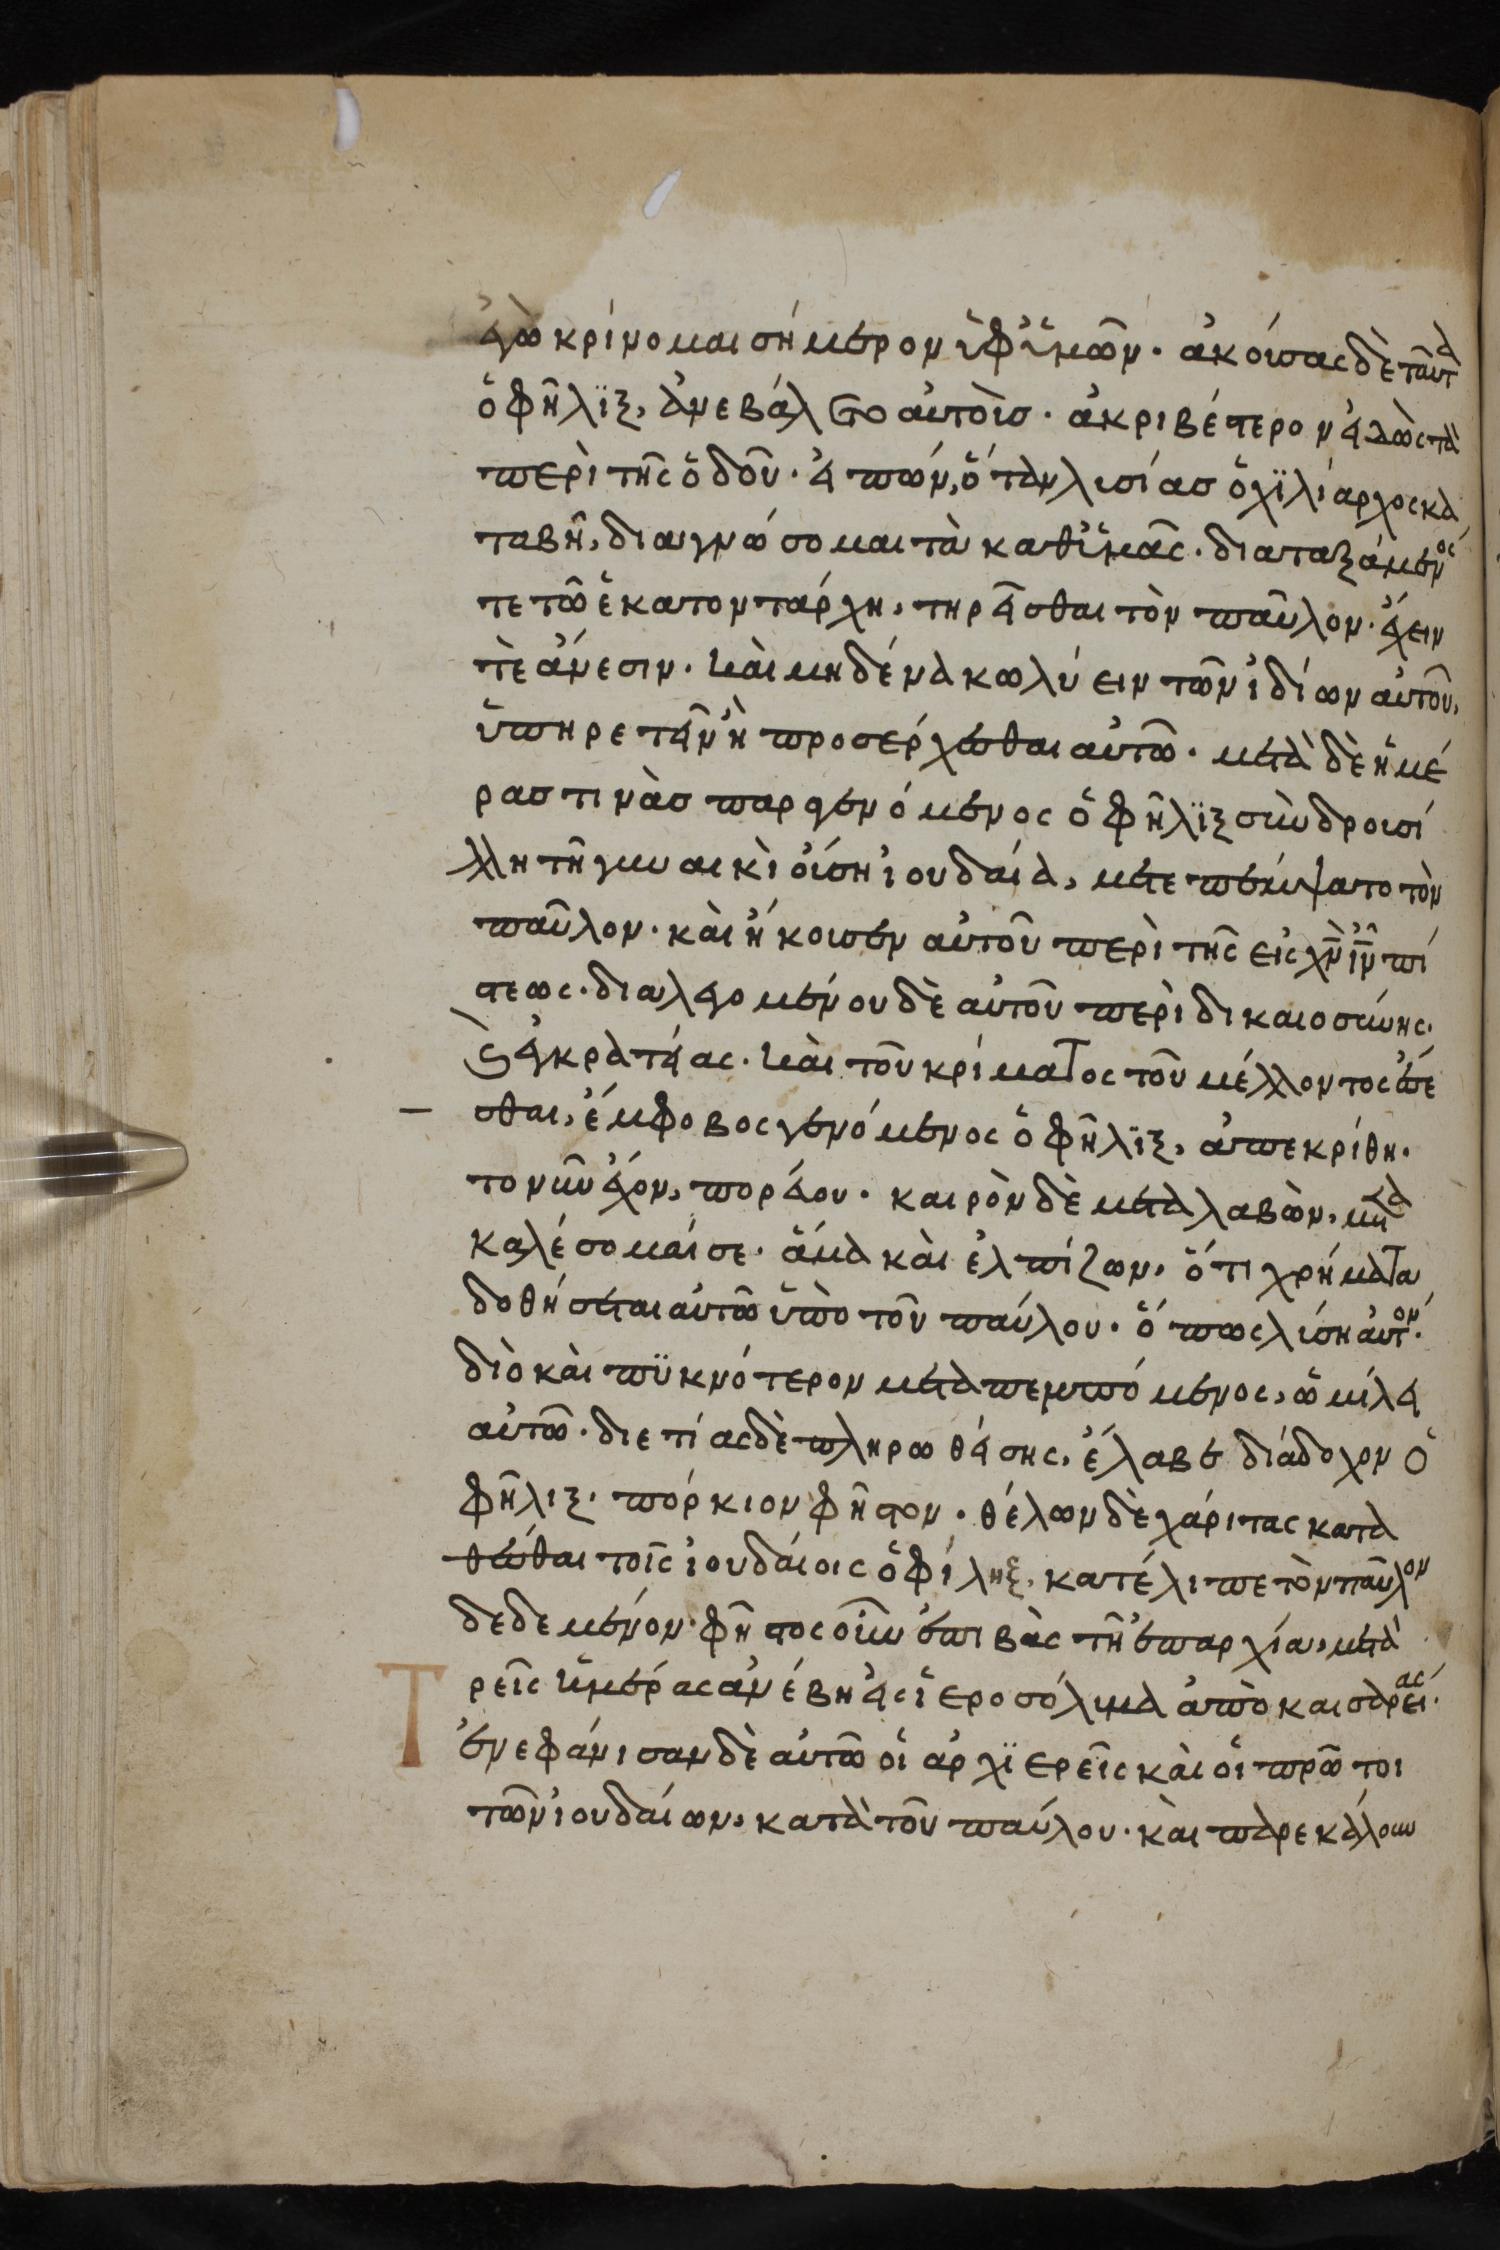 ἐγὼ κρίνομαι σήμερον ὑφ' ὑμῶν · ἀκούσας δὲ ταῦτα
ὁ φῆλϊξ, ἀνεβάλετο αὐτοὺσ · ἀκριβέστερον εἰδὼς τὰ
περὶ τῆς ὁδοῦ · εἰπών, ὅταν λυσίασ ὁ χϊλίαρχος κα
ταβῆ, διαγνώσομαι τὰ καθ' ὑμᾶς · διαταξάμενός
τε τῶ ἑκατοντάρχη, τηρεῖσθαι τὸν παῦλον · ἔχειν
τὲ ἄνεσιν · καὶ μηδένα κωλύειν τῶν ἰδίων αὐτοῦ,
ὑπηρετεῖν ἢ προσέρχεσθαι αὐτῶ · μετὰ δὲ ἡμέ
ρασ τινὰσ παραγενόμενος ὁ φῆλϊξ σὺν δρουσί
λλη τῆ γυναικὶ οὔση ἰουδαία, μετεπέμψατο τὸν
παῦλον · καὶ ἤκουσεν αὐτοῦ περὶ τῆς εἰς χν ιν πί
στεως · διαλεγομένου δὲ αὐτοῦ περὶ δικαιοσύνης ·
καὶ ἐγκρατείας · καὶ τοῦ κρίματος τοῦ μέλλοντος ἔσε
σθαι, ἔμφοβος γενόμενος ὁ φῆλϊξ, ἀπεκρίθη ·
το νῦν ἔχον, πορεύου · καιρὸν δὲ μεταλαβὼν, μετα
καλέσομαί σε · ἅμα καὶ ἐλπίζων, ὅτι χρήματα
δοθήσεται αὐτῶ ὑπὸ τοῦ παύλου · ὅπως λύση αὐτόν ·
διὸ καὶ πϋκνότερον μεταπεμπόμενος, ὡμίλει
αὐτῶ · διετίας δὲ πληρωθείσης, ἔλαβε διάδοχον ὁ
φῆλιξ · πόρκιον φῆστον · θέλων δὲ χάριτας κατα
θέσθαι τοῖς ἰουδαίοις ὁ φίληξ, κατέλιπε τὸν παῦλον
δεδεμένον · φῆστος οὖν ἐπιβὰς τῆ ἐπαρχία, μετὰ
Τρεῖς ἡμέρας ἀνέβη εἰς ἱεροσόλυμα ἀπὸ καισαρείας ·
ἐνεφάνισαν δὲ αὐτῶ οἱ ἀρχϊερεῖς καὶ οἱ πρῶτοι
τῶν ἰουδαίων, κατὰ τοῦ παύλου · καὶ παρεκάλουν